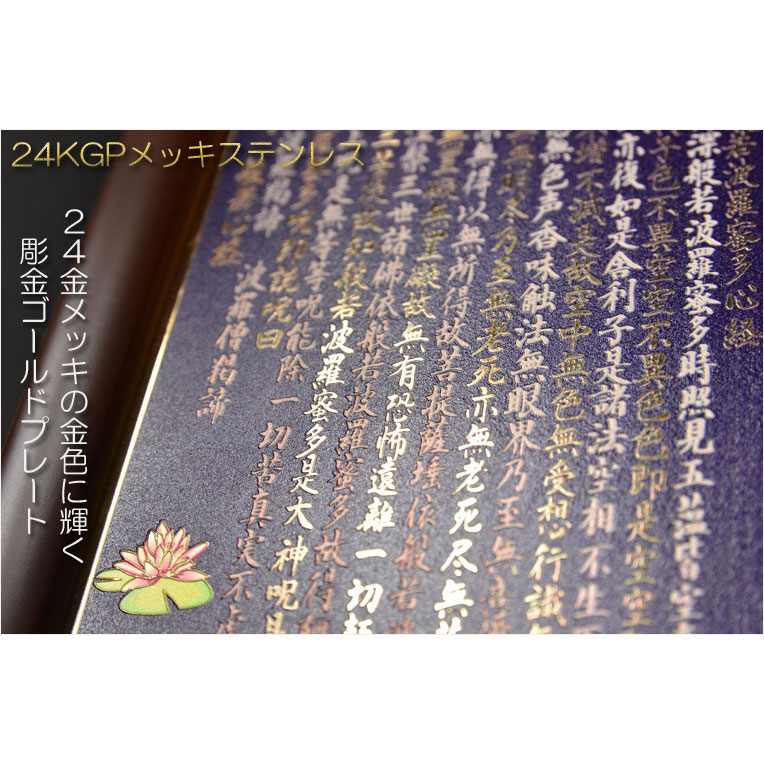 24KGPメッキステンレス
24金メッキの金色に輝く
彫金ゴールドプレート
若波羅蜜多心経
深般若波羅蜜多時照見五蘊皆空
色不異空空不異色色即是空空
亦復如是舎利子是諸法空相不生
不滅是故空中無色無受想行識
無色声香味触法無眼界乃至無
無明尽乃至無老死亦無老死尽無
無得以無所得故菩提薩埵依般若
罣礙無罣礙故無有恐怖遠離一切
三世諸佛依般若波羅蜜多故得
故知般若波羅蜜多是大神呪是
是無等等呪能除一切苦真実不虚
多呪即説呪曰
羯諦 波羅僧羯諦
心経